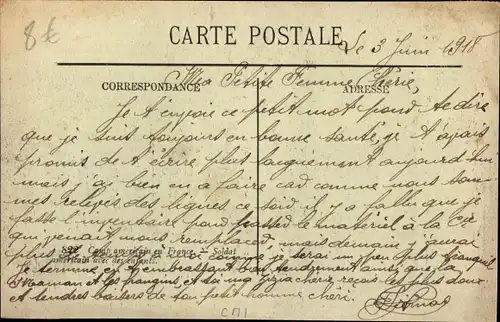 8€
CARTE POSTALE
Le 3 Juin 1918
CORRESPONDANCE
ADRESSE
Ma Petite Femme Chérie,
Je t'envoie ce petit mot pour te dire
que je suis toujours en bonne santé, je t'avais
promis de t'écrire plus longuement aujourd'hui
mais j'ai bien en a faire car comme nous som-
mes relevés des lignes ce soir il y a fallu que je
fasse l'inventaire pour passer le matériel à la Cie
qui venait nous remplacer, mais demain j'aurai
Camp américain en France. — Soldat
plus je serai un peu plus tranquil
américain avec des enfants.
Je termine en t'embrassant bien tendrement ainsi que la
Maman et les frangins et toi ma gigia chérie reçois les plus doux
et tendres baisers de ton petit homme chéri.
CM1